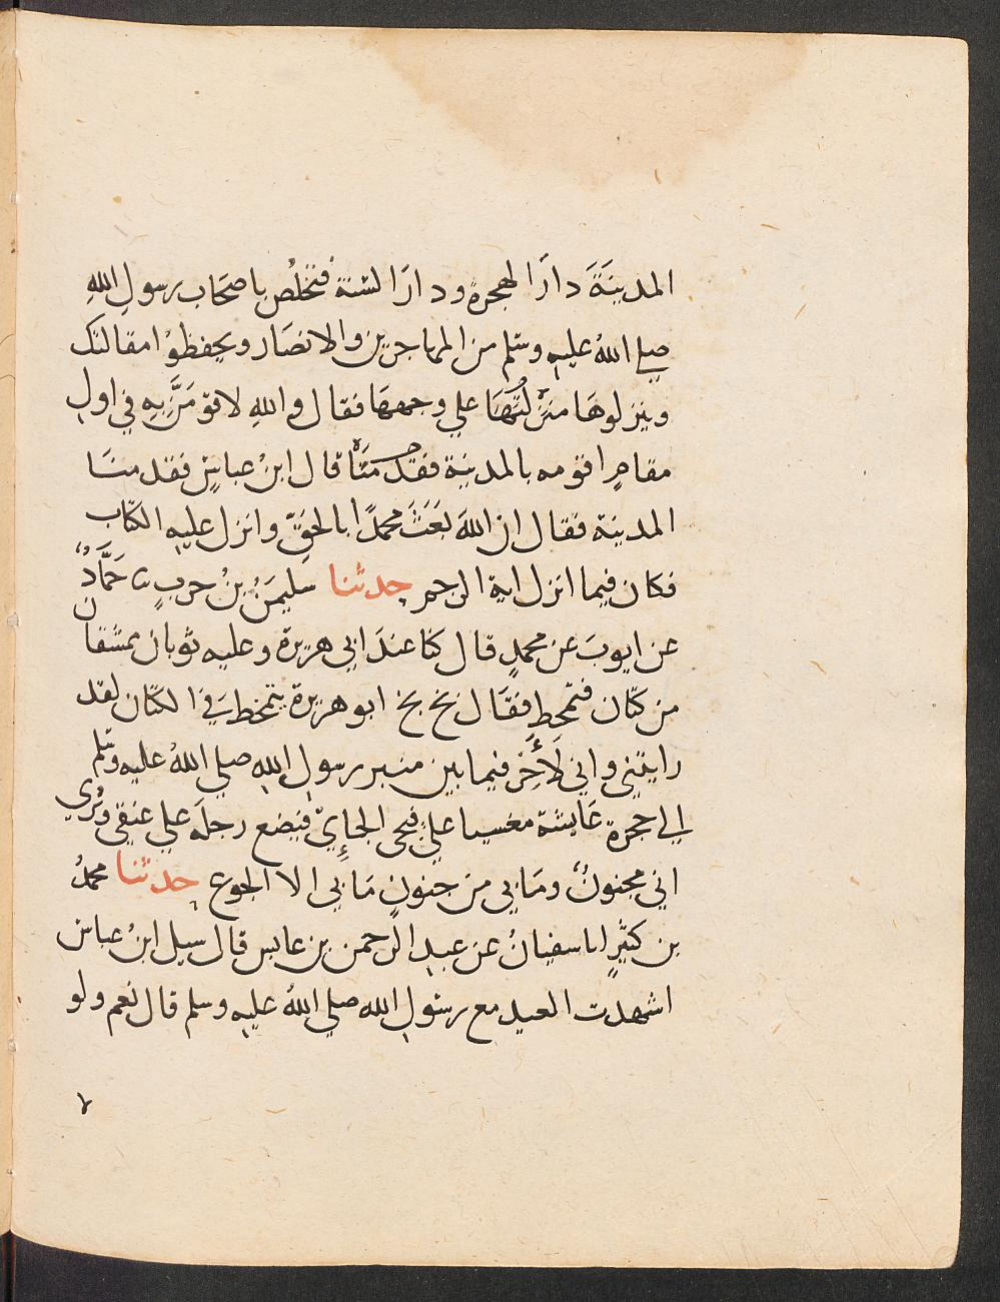 المدينَةَ دارَا الهجرة ودارَا لسنة فتخلُص باصحَاب رسولِ اللهِ
صلي اللهُ عليهِ وسلم من المهاجرين والانصَار ويحفظوْا مقالتك
وينزلوهَا منزلتُهَا علي وجههَا فقال واللهِ لاقومَنَّ بِه في اولِ
مقامٍ اقومه بالمدينة فقد متَا قال ابنُ عباسٍ فقدمنَا
المدينة فقال ان اللهَ بَعَثَ محمدًا بالحَقِّ وانزل عليهِ الكتاب
فكان فيما انزل اية الرجم حدثنا سَليمَنُ بنُ حربٍ ثنا حَمَّادُ
عن ايوبَ عن محمدٍ قال كنا عندَ ابي هريرة وعليه ثوبان ممشقان
من كتان فتمخط فقَال بخ بخ ابو هريرة يتمخط في الكتان لقد
رايتني واني لَأَخِرُ فيما بين منبر رسولِ اللهِ صلي اللهُ عليه وسلم
الي حجرة عَايشة مغسيا عليَّ فيجي الجاِيِّ فيضع رجلَه علي عنقي ويُري
اني مجنونٌ ومَا بي من جنونٍ مَا بي الا الجوع حدثنا محمدُ
بن كثيرٍ انا سفيانُ عن عبدِ الرحمن بن عابس قال سيل ابنُ عباسٍ
اشهدت العيد مع رسُولِ الله صلي اللهُ عليهِ وسلم قال نعم ولو